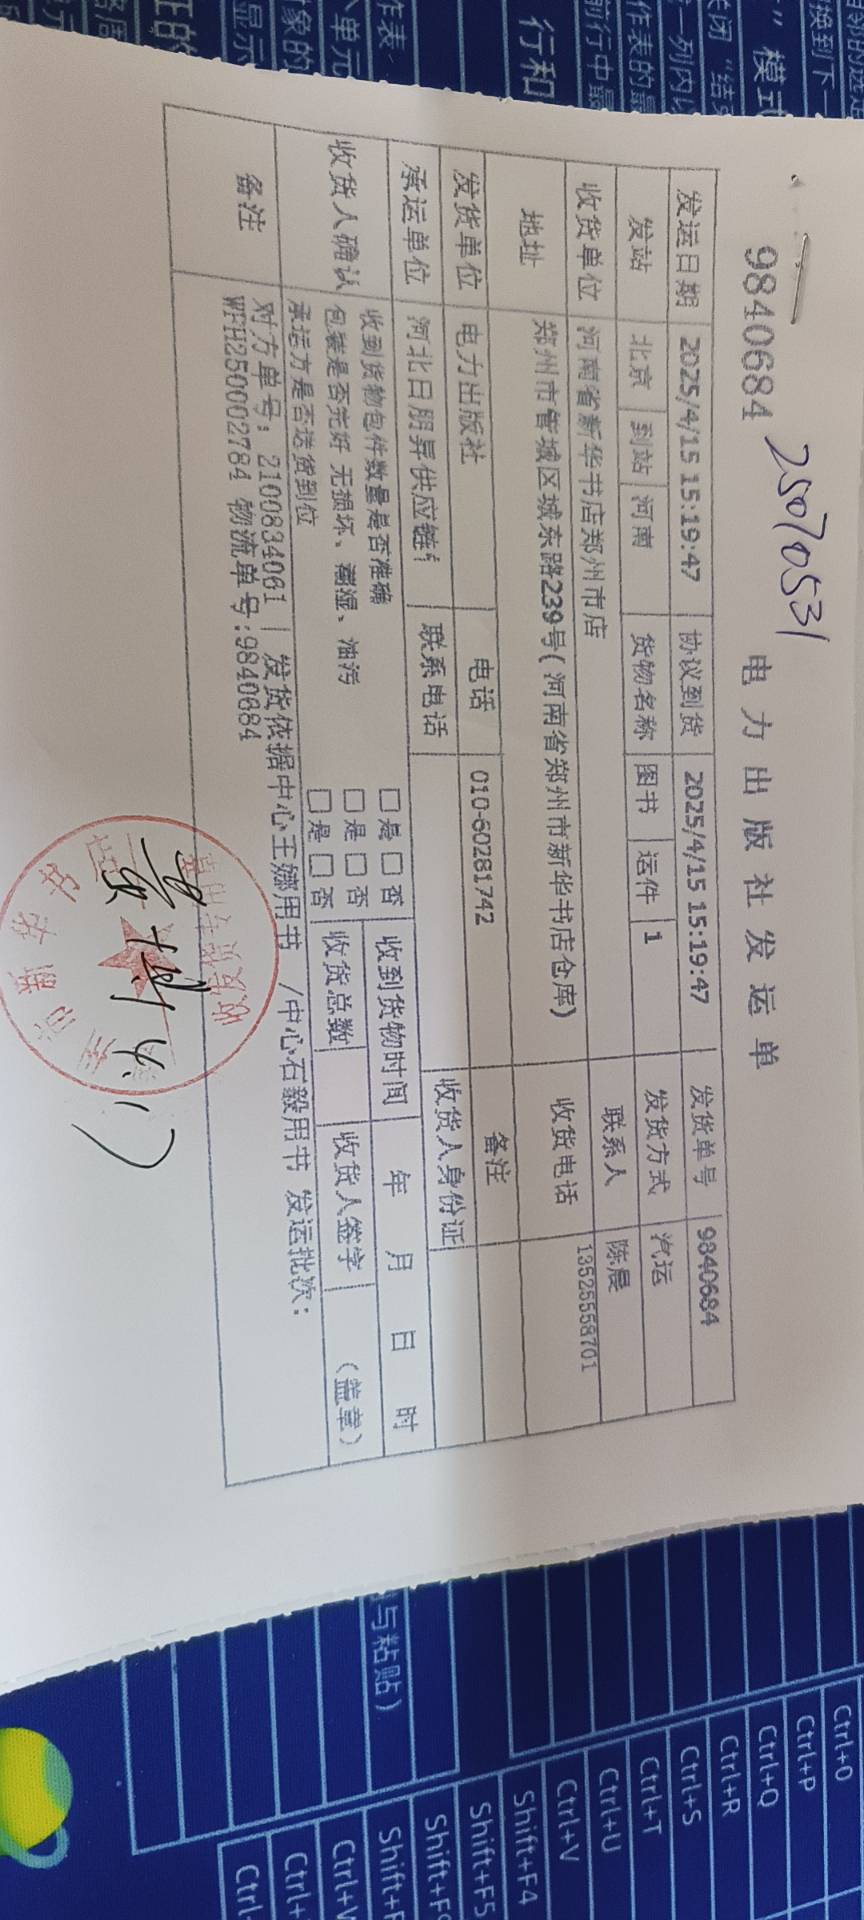 25070531
9840684 电力出版社发运单
发运日期 2025/4/15 15:19:47 协议到货 2025/4/15 15:19:47 发货单号 9840684
发站 北京 到站 河南 货物名称 图书 运件 1 发货方式 汽运
收货单位 河南省新华书店郑州市店 联系人 陈晨
地址 郑州市管城区城东路239号(河南省郑州市新华书店仓库) 收货电话 13525558701
发货单位 电力出版社 电话 010-60281742 备注
承运单位 河北日朋昇供应链 联系电话 收货人身份证
收货人确认 收到货物包件数量是否准确 □是 □否 收到货物时间 年 月 日 时
包装是否完好 无损坏、潮湿、油污 □是 □否 收货总数 收货人签字 (盖章)
承运方是否送货到位 □是 □否
备注 对方单号：2100834061 | 发货依据中心王娜用书 /中心石毅用书 发运批次：
WFH250002784 物流单号:9840684
市新华书店
与粘贴）
行和
Ctrl+O
Ctrl+P
Ctrl+Q
Ctrl+R
Ctrl+S
Ctrl+T
Ctrl+U
Ctrl+V
Shift+F4
Shift+F5